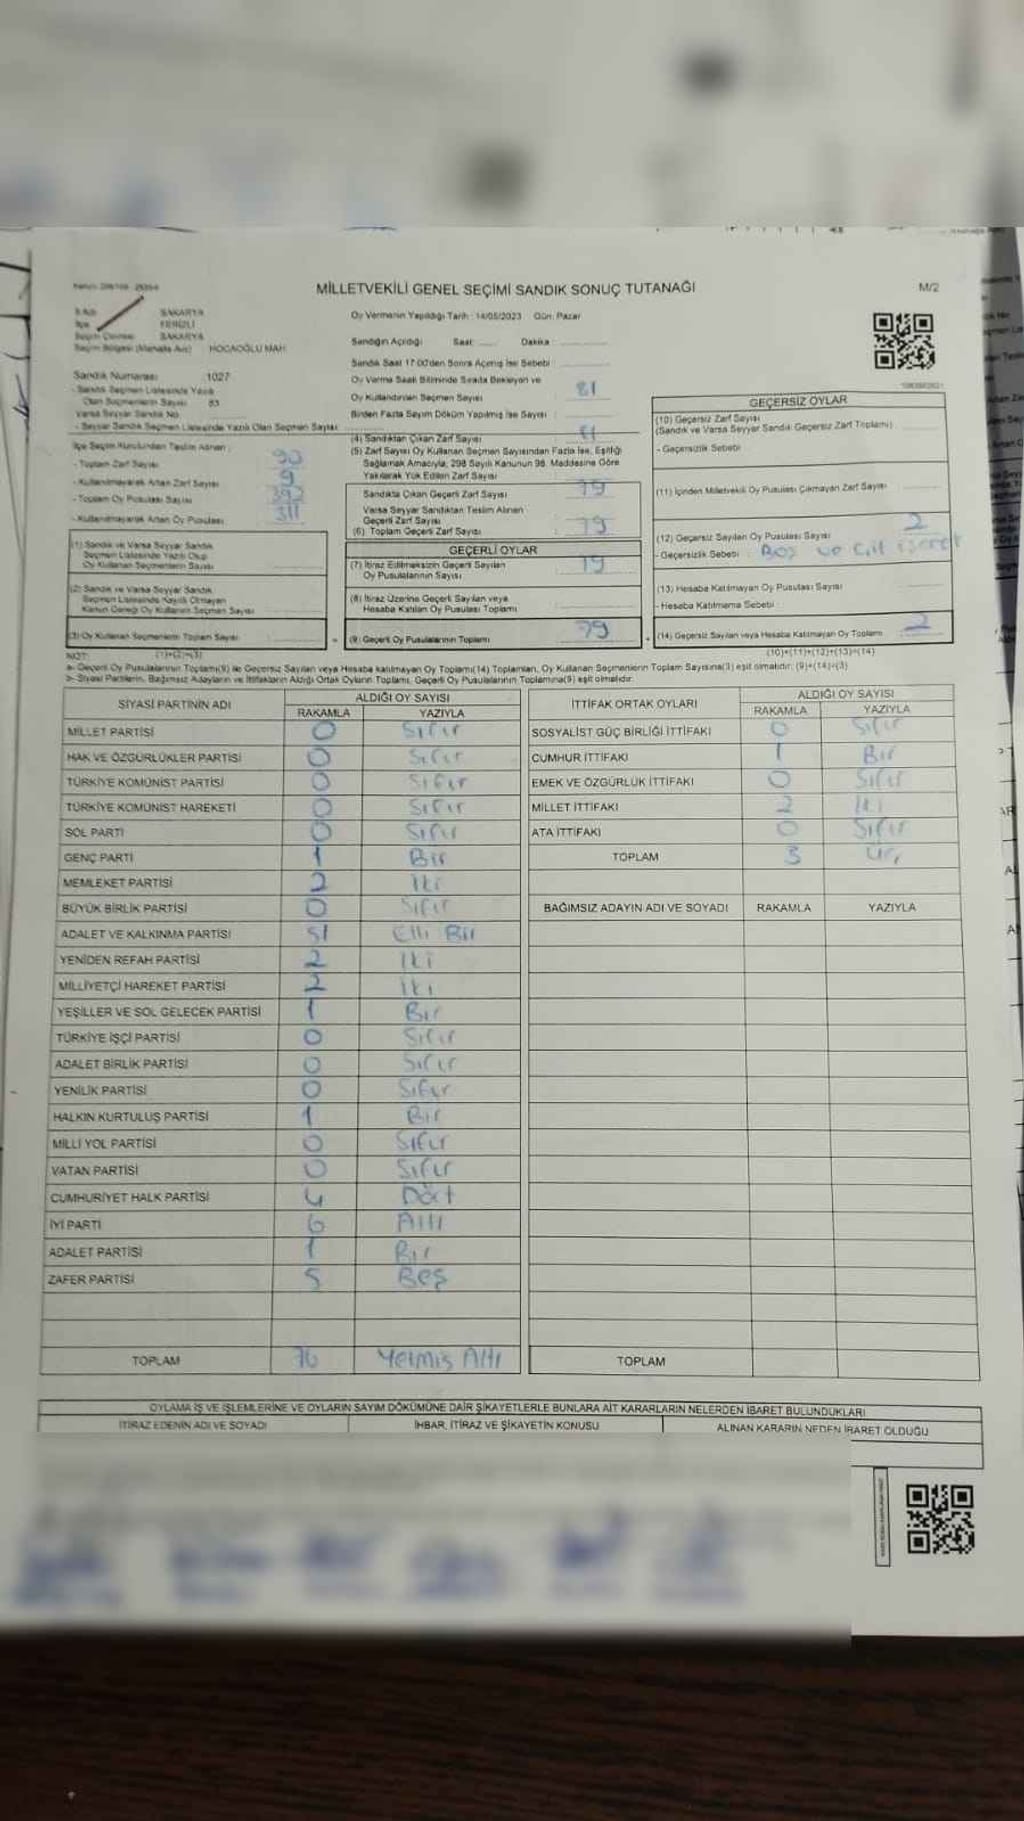 MİLLETVEKİLİ GENEL SEÇİMİ SANDIK SONUÇ TUTANAĞI
M/2
İl Adı SAKARYA
İlçe FERİZLİ
Seçim Çevresi SAKARYA
Seçim Bölgesi (Mahalle Adı) : HOCAOĞLU MAH.
Sandık Numarası : 1027
Sandık Seçmen Listesinde Yazılı
Olan Seçmenlerin Sayısı 83
Varsa Seyyar Sandık No
- Seyyar Sandık Seçmen Listesinde Yazılı Olan Seçmen Sayısı
İlçe Seçim Kurulundan Teslim Alınan ;
- Toplam Zarf Sayısı 90
- Kullanılmayarak Artan Zarf Sayısı 9
- Toplam Oy Pusulası Sayısı 392
- Kullanılmayarak Artan Oy Pusulası 311
(1) Sandık ve Varsa Seyyar Sandık
Seçmen Listesinde Yazılı Olup
Oy Kullanan Seçmenlerin Sayısı
(2) Sandık ve Varsa Seyyar Sandık
Seçmen Listesinde Kayıtlı Olmayan
Kanun Gereği Oy Kullanan Seçmen Sayısı
(3) Oy Kullanan Seçmenlerin Toplam Sayısı
(1)+(2)=(3)
Oy Vermenin Yapıldığı Tarih : 14/05/2023 Gün: Pazar
Sandığın Açıldığı Saat: Dakika :
Sandık Saat 17:00'den Sonra Açılmış İse Sebebi :
Oy Verme Saati Bitiminde Sırada Bekleyen ve
Oy Kullandırılan Seçmen Sayısı : 81
Birden Fazla Sayım Döküm Yapılmış İse Sayısı :
(4) Sandıktan Çıkan Zarf Sayısı : 81
(5) Zarf Sayısı Oy Kullanan Seçmen Sayısından Fazla İse, Eşitliği
Sağlamak Amacıyla; 298 Sayılı Kanunun 98. Maddesine Göre
Yakılarak Yok Edilen Zarf Sayısı
Sandıkta Çıkan Geçerli Zarf Sayısı : 79
Varsa Seyyar Sandıktan Teslim Alınan
Geçerli Zarf Sayısı
(6) Toplam Geçerli Zarf Sayısı : 79
GEÇERLİ OYLAR
(7) İtiraz Edilmeksizin Geçerli Sayılan
Oy Pusulalarının Sayısı : 79
(8) İtiraz Üzerine Geçerli Sayılan veya
Hesaba Katılan Oy Pusulası Toplamı
(9) Geçerli Oy Pusulalarının Toplamı 79
GEÇERSİZ OYLAR
(10) Geçersiz Zarf Sayısı
(Sandık ve Varsa Seyyar Sandık Geçersiz Zarf Toplamı)
- Geçersizlik Sebebi :
(11) İçinden Milletvekili Oy Pusulası Çıkmayan Zarf Sayısı
(12) Geçersiz Sayılan Oy Pusulası Sayısı 2
- Geçersizlik Sebebi : Boş ve Çift işaret
(13) Hesaba Katılmayan Oy Pusulası Sayısı
- Hesaba Katılmama Sebebi :
(14) Geçersiz Sayılan veya Hesaba Katılmayan Oy Toplamı 2
(10)+(11)+(12)+(13)=(14)
NOT:
a- Geçerli Oy Pusulalarının Toplamı(9) ile Geçersiz Sayılan veya Hesaba katılmayan Oy Toplamı(14) Toplamları, Oy Kullanan Seçmenlerin Toplam Sayısına(3) eşit olmalıdır; (9)+(14)=(3)
b- Siyasi Partilerin, Bağımsız Adayların ve İttifakların Aldığı Ortak Oyların Toplamı, Geçerli Oy Pusulalarının Toplamına(9) eşit olmalıdır.
SİYASİ PARTİNİN ADI ALDIĞI OY SAYISI
RAKAMLA YAZIYLA
MİLLET PARTİSİ 0 Sıfır
HAK VE ÖZGÜRLÜKLER PARTİSİ 0 Sıfır
TÜRKİYE KOMÜNİST PARTİSİ 0 Sıfır
TÜRKİYE KOMÜNİST HAREKETİ 0 Sıfır
SOL PARTİ 0 Sıfır
GENÇ PARTİ 1 Bir
MEMLEKET PARTİSİ 2 İki
BÜYÜK BİRLİK PARTİSİ 0 Sıfır
ADALET VE KALKINMA PARTİSİ 51 Elli Bir
YENİDEN REFAH PARTİSİ 2 İki
MİLLİYETÇİ HAREKET PARTİSİ 2 İki
YEŞİLLER VE SOL GELECEK PARTİSİ 1 Bir
TÜRKİYE İŞÇİ PARTİSİ 0 Sıfır
ADALET BİRLİK PARTİSİ 0 Sıfır
YENİLİK PARTİSİ 0 Sıfır
HALKIN KURTULUŞ PARTİSİ 1 Bir
MİLLİ YOL PARTİSİ 0 Sıfır
VATAN PARTİSİ 0 Sıfır
CUMHURİYET HALK PARTİSİ 4 Dört
İYİ PARTİ 6 Altı
ADALET PARTİSİ 1 Bir
ZAFER PARTİSİ 5 Beş
TOPLAM 76 Yetmiş Altı
İTTİFAK ORTAK OYLARI ALDIĞI OY SAYISI
RAKAMLA YAZIYLA
SOSYALİST GÜÇ BİRLİĞİ İTTİFAKI 0 Sıfır
CUMHUR İTTİFAKI 1 Bir
EMEK VE ÖZGÜRLÜK İTTİFAKI 0 Sıfır
MİLLET İTTİFAKI 2 İki
ATA İTTİFAKI 0 Sıfır
TOPLAM 3 Üç
BAĞIMSIZ ADAYIN ADI VE SOYADI RAKAMLA YAZIYLA
TOPLAM
OYLAMA İŞ VE İŞLEMLERİNE VE OYLARIN SAYIM DÖKÜMÜNE DAİR ŞİKAYETLERLE BUNLARA AİT KARARLARIN NELERDEN İBARET BULUNDUKLARI
İTİRAZ EDENİN ADI VE SOYADI İHBAR, İTİRAZ VE ŞİKAYETİN KONUSU ALINAN KARARIN NEDEN İBARET OLDUĞU